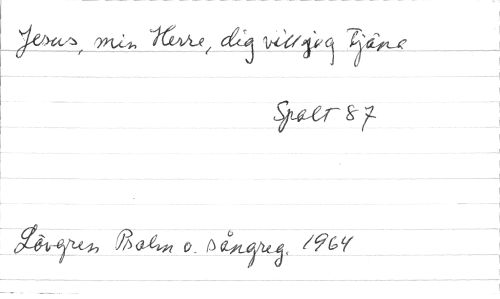 Jesus, min Herre, dig vill jag tjäna
Spalt 87
Lövgren Psalm o. sångreg. 1964